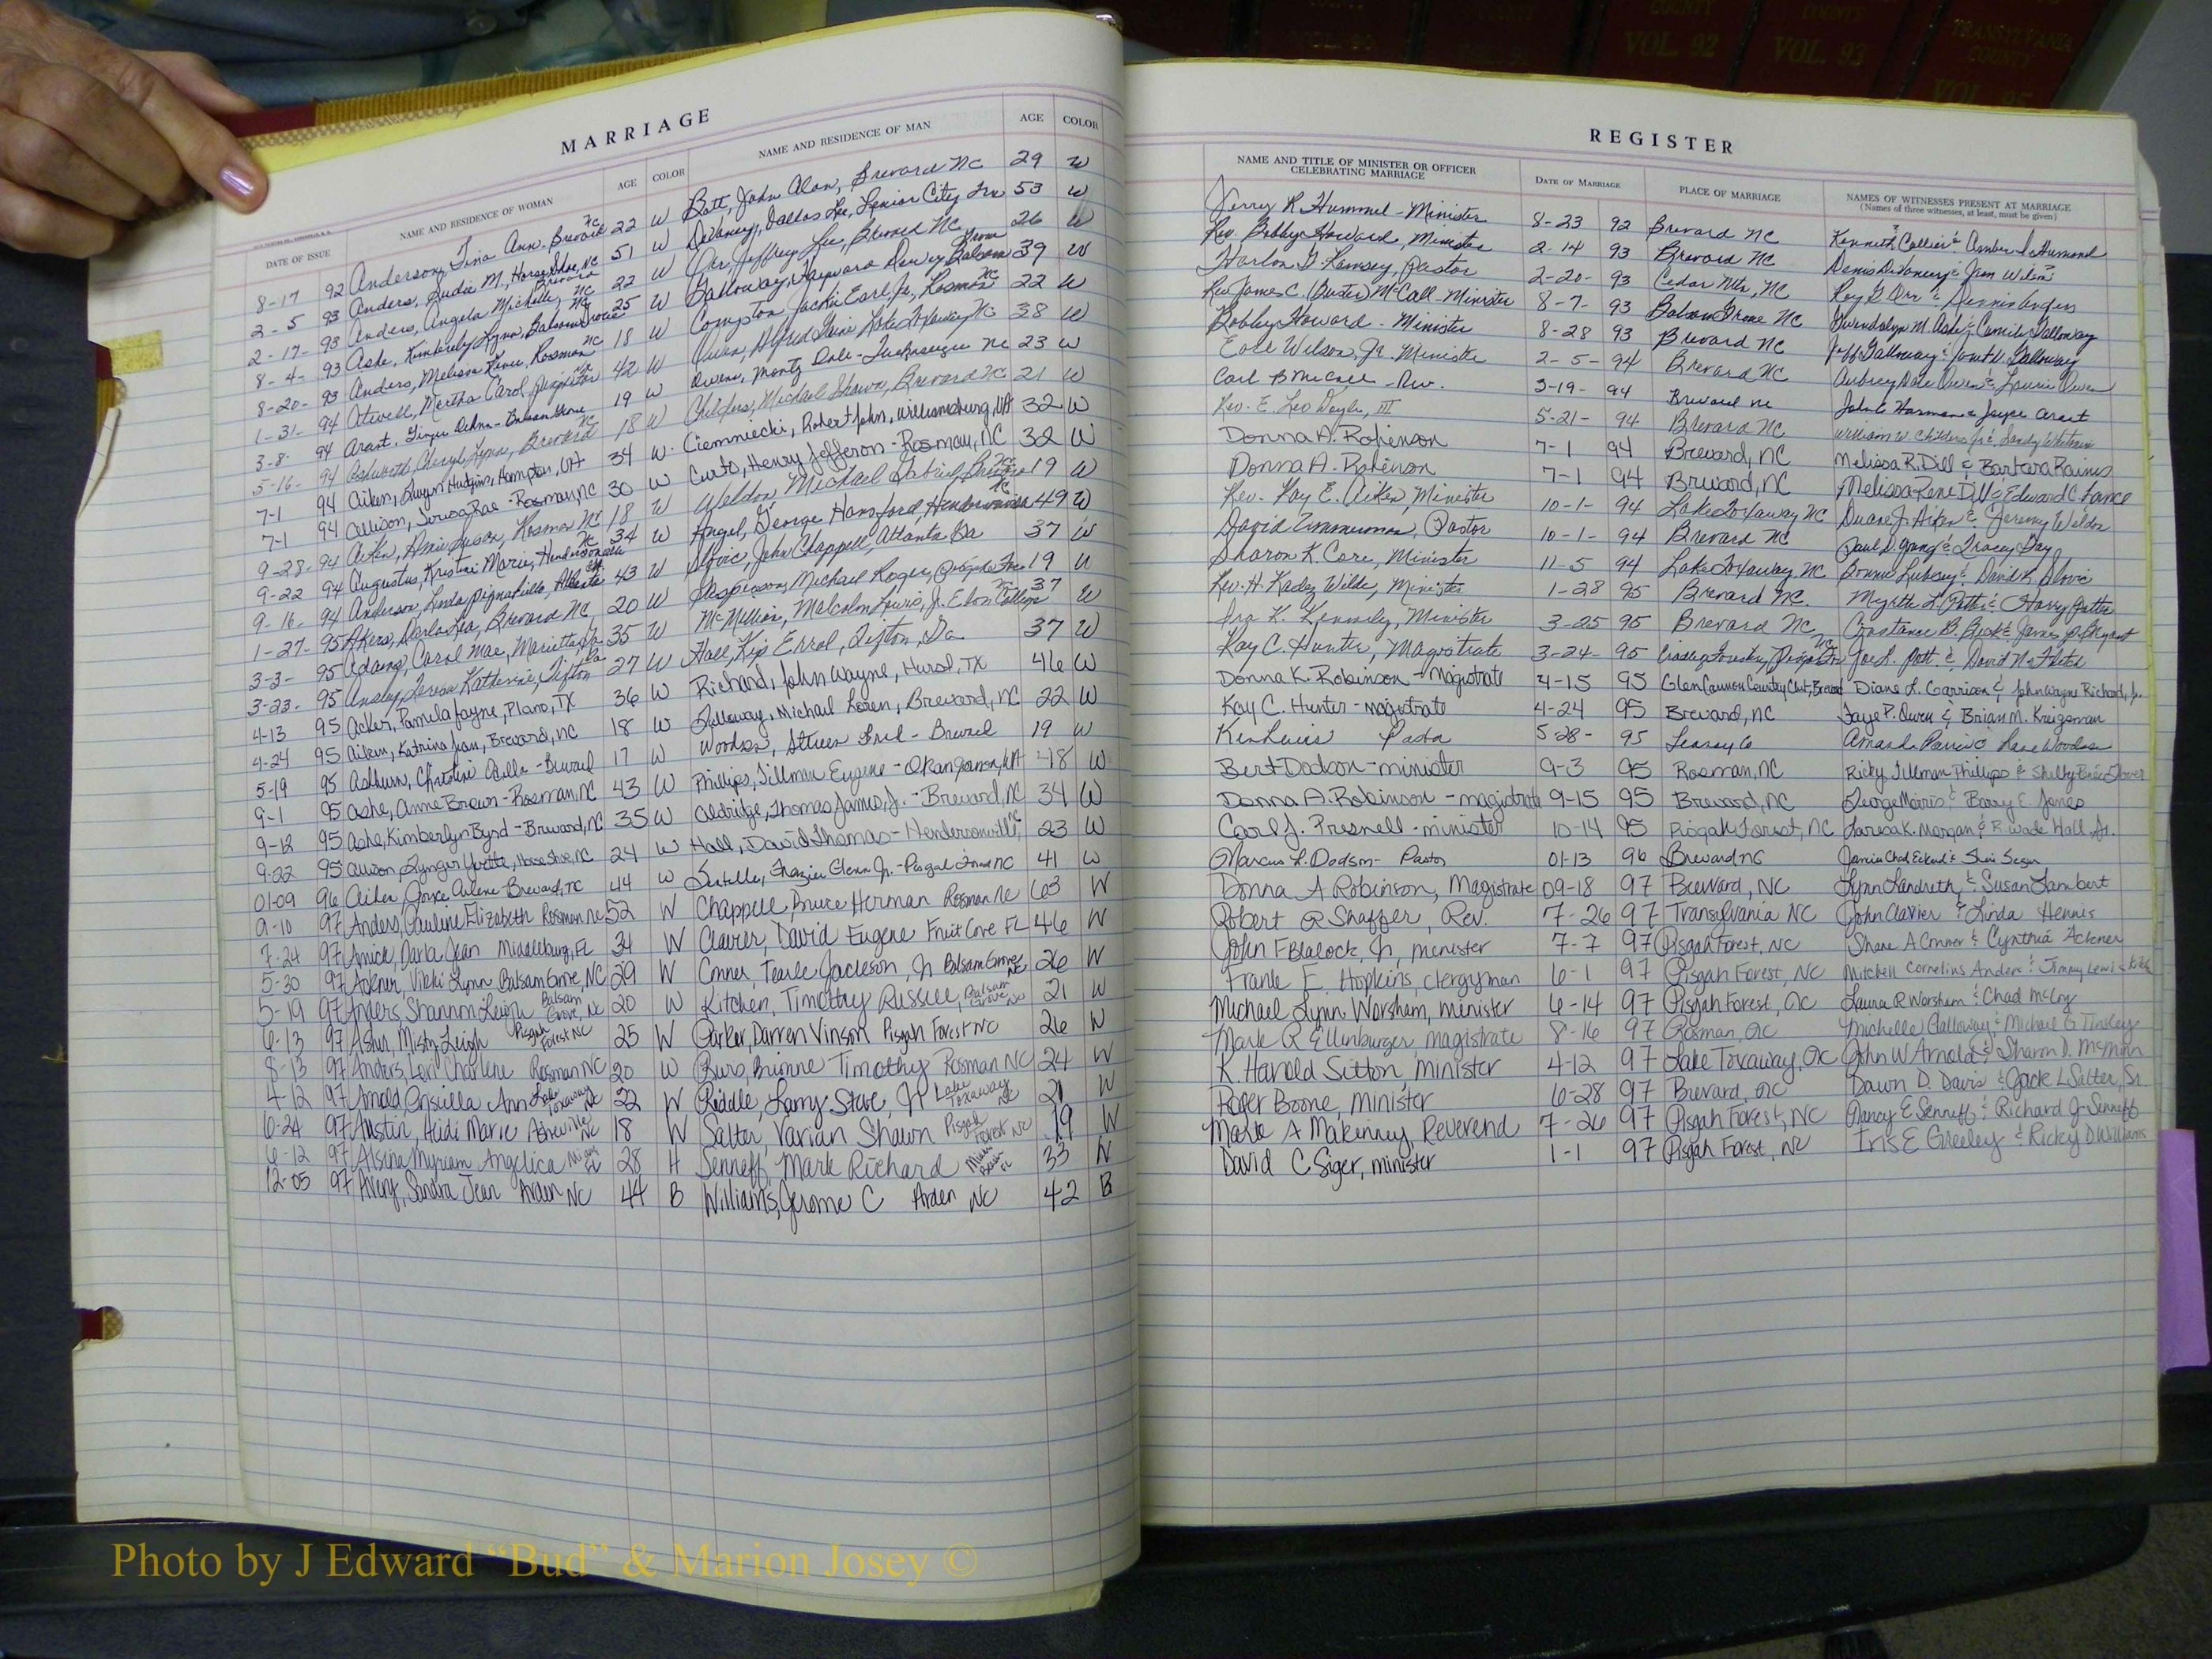 COUNTY
VOL. 92
COUNTY
VOL. 93
TRANSYLVANIA
COUNTY
VOL. 95
MARRIAGE
DATE OF ISSUE
NAME AND RESIDENCE OF WOMAN
AGE
COLOR
NAME AND RESIDENCE OF MAN
AGE
COLOR
8-17 92 Anderson, Tina Ann - Brevard NC 22 W Batt, John Alan, Brevard NC 29 W
2-5 93 Anders, M., Horse Shoe, NC 51 W Dallas Lee, Lenior City 53 W
2-17- 93 Anders, Angela Michelle, Brevard NC 22 W Orr, Jeffrey Lee, Brevard NC 26 W
8-4- 93 Ashe, Kimberly Lynn, Balsam Grove NC 25 W Galloway, Balsam Grove 39 W
8-20- 93 Anders, Melissa Renee, Rosman NC 18 W Compton, Jackie Earl Jr., Rosman NC 22 W
1-31- 94 Atwell, Martha Carol 42 W Owen, Alfred Lake Toxaway NC 38 W
3-8- 94 19 W Owens, Monty Dale - Tuckasegee NC 23 W
5-16- 94 Ashworth, Cheryl Lynne, Brevard NC 18 W Childers, Michael Shawn, Brevard NC 21 W
7-1 94 Aiken, Hudgins, Hampton, VA 34 W Ciemniecki, Robert John, Williamsburg, VA 32 W
7-1 94 Allison, Teresa Rae - Rosman, NC 30 W Curto, Henry Jefferson - Rosman, NC 32 W
9-28- 94 Aiken, Amie Susan, Rosman NC 18 W Weldon, Michael 19 W
9-22 94 Augustus, Kristine Marie, Hendersonville NC 34 W Angel, George Hansford, Hendersonville NC 49 W
9-16- 94 Anderson, Linda 43 W John Chappell, Atlanta Ga 37 W
1-27- 95 Akers, Darla Lea, Brevard NC 20 W Michael Roger, 19 W
3-3- 95 Adams, Carol Mae, Marietta Ga 35 W McMillian, Malcolm Lewis, Jr. Elon College NC 37 W
3-23- 95 Teresa Katherine, Tifton Ga 27 W Hall, Kip Errol, Tifton, Ga 37 W
4-13 95 Acker, Pamela Jayne, Plano, TX 36 W Richard, John Wayne, Hurst, TX 46 W
4-24 95 Aiken, Katrina Jean, Brevard, NC 18 W Galloway, Michael Loren, Brevard, NC 22 W
5-19 95 Ashburn, Christine - Brevard 17 W Woodson, - Brevard 19 W
9-1 95 Ashe, Anne Brown - Rosman, NC 43 W Phillips, Tillman Eugene - 48 W
9-12 95 Ashe, Kimberlyn Byrd - Brevard, NC 35 W Aldridge, Thomas James, Jr. - Brevard, NC 34 W
9-22 95 Allison, Yvette, Horse Shoe, NC 24 W Hall, David Thomas - Hendersonville, NC 23 W
01-09 96 Aiken, Joyce Arlene - Brevard, NC 44 W Frazier Glenn Jr. - Pisgah Forest NC 41 W
9-10 97 Anders, Pauline Elizabeth Rosman NC 52 W Chappell, Bruce Herman Rosman NC 63 W
7-24 97 Amick, Darla Jean Middleburg, FL 34 W Clavier, David Eugene Fruit Cove FL 46 W
5-30 97 Ackner, Vicki Lynn Balsam Grove, NC 29 W Conner, Tearle Jackson, Jr Balsam Grove NC 26 W
5-19 97 Anders, Shannon Leigh Balsam Grove, NC 20 W Kitchen, Timothy Russell, Balsam Grove NC 21 W
6-13 97 Asher, Misty Leigh Pisgah Forest NC 25 W Parker, Darren Vinson Pisgah Forest NC 26 W
8-13 97 Anders, Lori Charlene Rosman NC 20 W Burs, Brionne Timothy Rosman NC 24 W
4-12 97 Arnold Prisilla Ann Lake Toxaway NC 22 W Riddle, Larry Steve, Jr Lake Toxaway NC 21 W
6-24 97 Austin, Heidi Marie Asheville NC 18 W Salter, Varian Shawn Pisgah Forest NC 19 W
6-12 97 Alsina Myriam Angelica 28 H Senneff, Mark Richard 33 W
12-05 97 Avery, Sandra Jean Arden NC 44 B Williams, Jerome C Arden NC 42 B
REGISTER
NAME AND TITLE OF MINISTER OR OFFICER CELEBRATING MARRIAGE
DATE OF MARRIAGE
PLACE OF MARRIAGE
NAMES OF WITNESSES PRESENT AT MARRIAGE
(Names of three witnesses, at least, must be given)
Jerry R. Hummel - Minister 8-23 92 Brevard NC Kenneth Collier &
Rev. Bobby Howard, Minister 2-14 93 Brevard NC
Harlon D. Ramsey, Pastor 2-20- 93 Cedar Mtn, NC Roy G Orr & Dennis Anders
Rev James C. (Buster) McCall - Minister 8-7- 93 Balsam Grove NC Gwendolyn M. Ashe & Galloway
Bobby Howard - Minister 8-28 93 Brevard NC Jeff Galloway & Galloway
Earl Wilson, Jr. Minister 2-5- 94 Brevard NC Aubrey Dale Owen & Laurie Owen
Carl B McCall - Rev. 3-19- 94 Brevard NC
Rev. E. Leo Doyle, III 5-21- 94 Brevard NC William W Childers Jr &
Donna A. Robinson 7-1 94 Brevard, NC Melissa R. Dill & Barbara Raines
Donna A. Robinson 7-1 94 Brevard, NC Melissa Rene Dill & Edward C. Lance
Rev. Kay E. Aiken, Minister 10-1- 94 Lake Toxaway NC Duane J. Aiken & Jeremy Weldon
David Zimmerman, Pastor 10-1- 94 Brevard NC Paul D. Young & Tracey Gay
Sharon K. Core, Minister 11-5 94 Lake Toxaway, NC Bonnie & David K.
Rev. H. Kadez Wilde, Minister 1-28 95 Brevard NC. Myrtle L. & Harry
Ira K. Kennerly, Minister 3-25 95 Brevard NC Constance B. & James P. Bryant
Kay C. Hunter, Magistrate 3-24- 95 Joe L. Pott. & David N.
Donna K. Robinson - Magistrate 4-15 95 Glen Cannon Country Club, Brevard Diane L. Garrison & John Wayne Richard, Jr.
Kay C. Hunter - Magistrate 4-24 95 Brevard, NC Faye P. Owen & Brian M. Kreigsman
Ken Lewis Pastor 5-28- 95 Amanda & Woodson
Bert Dodson - minister 9-3 95 Rosman, NC Ricky Tillman Phillips &
Donna A. Robinson - magistrate 9-15 95 Brevard, NC George Morris & Barry E. Jones
Carl J. Presnell - minister 10-14 95 Pisgah Forest, NC Laresa K. Morgan & R. Wade Hall, Jr.
Marcus L. Dodson - Pastor 01-13 96 Brevard NC
Donna A Robinson, Magistrate 09-18 97 Brevard, NC Lynn Landreth & Susan Lambert
Robert R Shaffer, Rev. 7-26 97 Transylvania NC John Clavier & Linda Hennis
John F Blalock, Jr, minister 7-7 97 Pisgah Forest, NC Shane A Conner & Cynthia Ackner
Frank E Hopkins, clergyman 6-1 97 Pisgah Forest, NC Mitchell Cornelius Anders & Jimmy Lewis
Michael Lynn Worsham, minister 6-14 97 Pisgah Forest, NC Laura R Worsham & Chad McCoy
Mark R Ellenburger, magistrate 8-16 97 Rosman, NC Michelle Galloway & Michael G Tinsley
K. Harold Sitton, minister 4-12 97 Lake Toxaway, NC John W Arnold & Sharon D. McMinn
Roger Boone, minister 6-28 97 Brevard, NC Dawn D. Davis & Jack L Salter, Sr.
Mark A Makinney, Reverend 7-26 97 Pisgah Forest, NC Nancy E Senneff & Richard J Senneff
David C Siger, minister 1-1 97 Pisgah Forest, NC Iris E Greeley & Ricky D Williams
Photo by J Edward "Bud" & Marion Josey ©